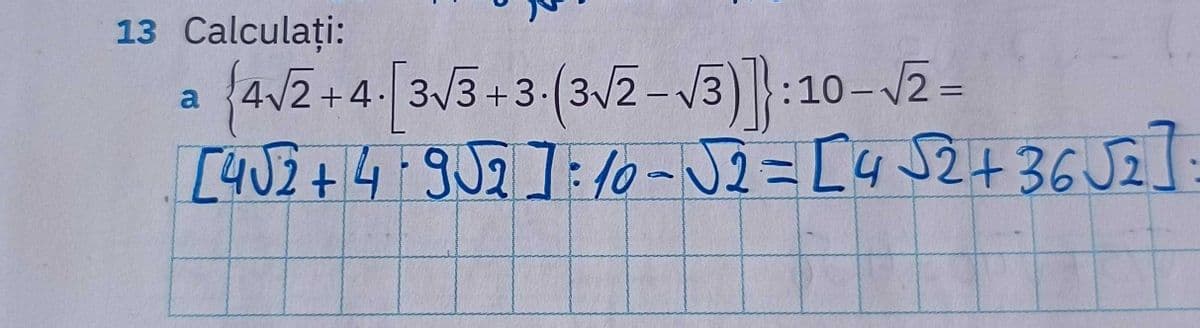 13 Calculați:
a {4√2+4·[3√3+3·(3√2-√3)]}:10-√2=
[4√2+4·9√2]:10-√2=[4√2+36√2]: